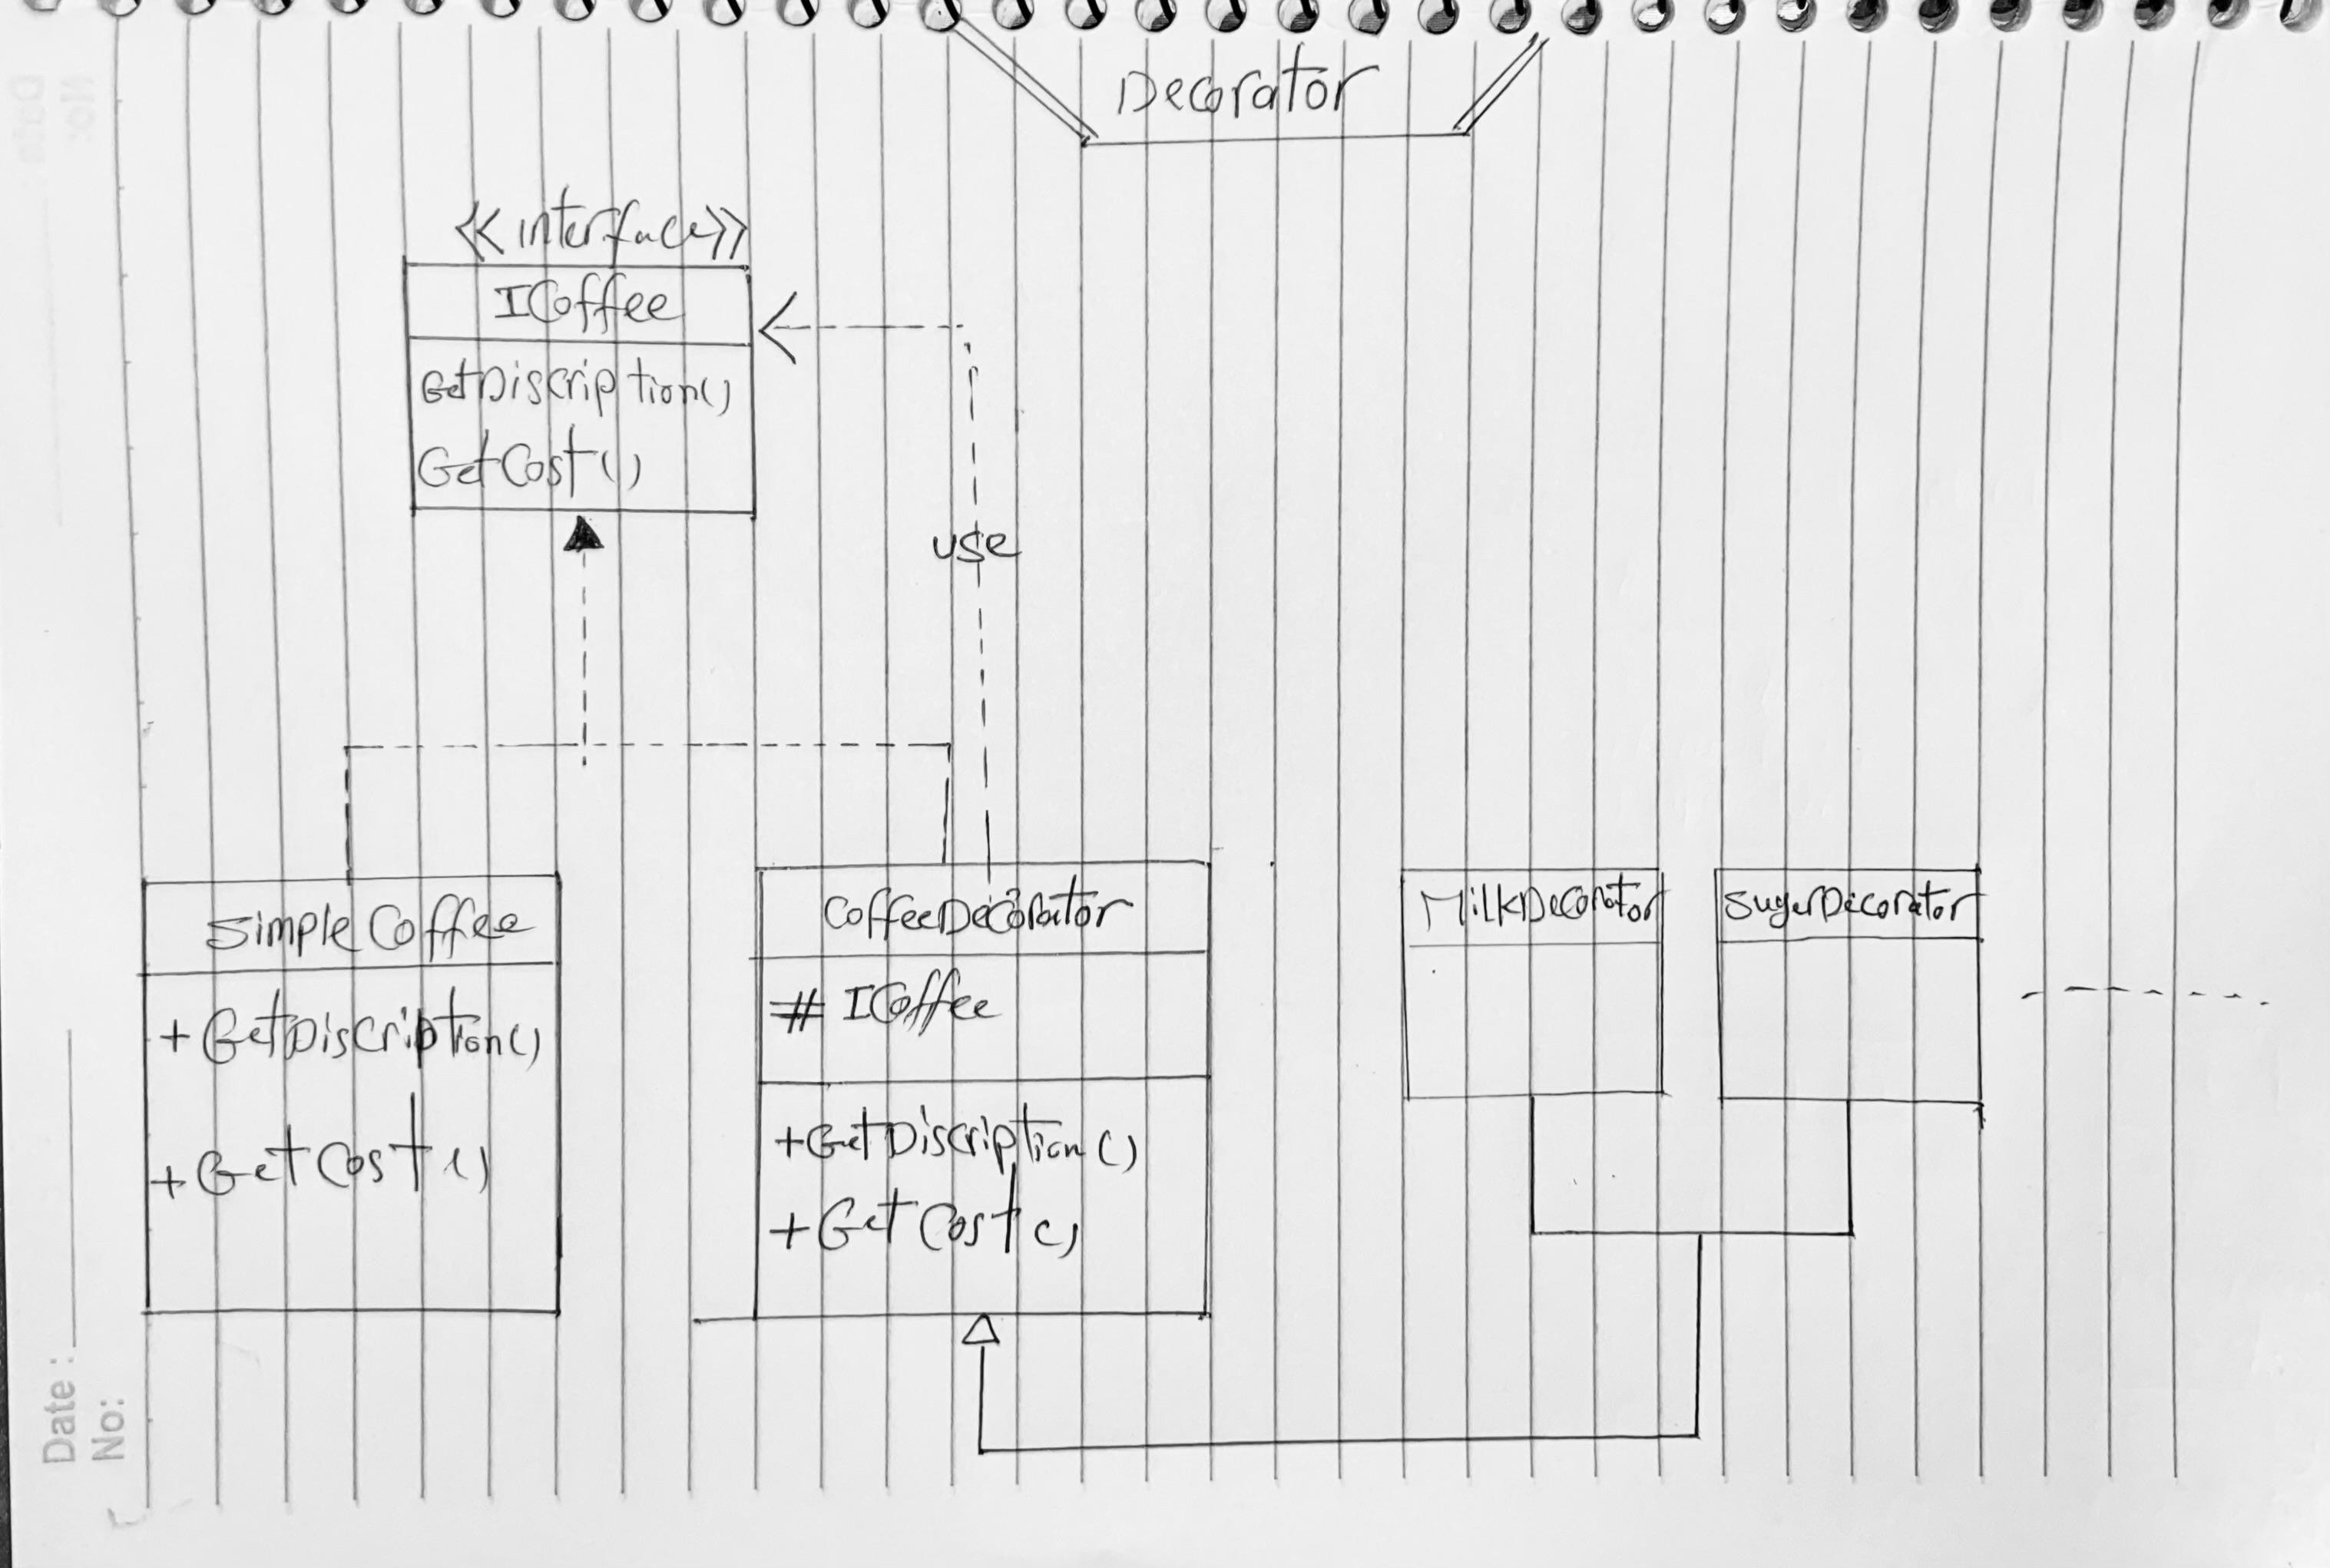 Decorator
<<interface>>
ICoffee
GetDiscription()
GetCost()
use
SimpleCoffee
+ GetDiscription()
+ GetCost()
CoffeeDecorator
# ICoffee
+ GetDiscription()
+ GetCost()
MilkDecorator
SugerDecorator
Date:
No:
No:
Date: